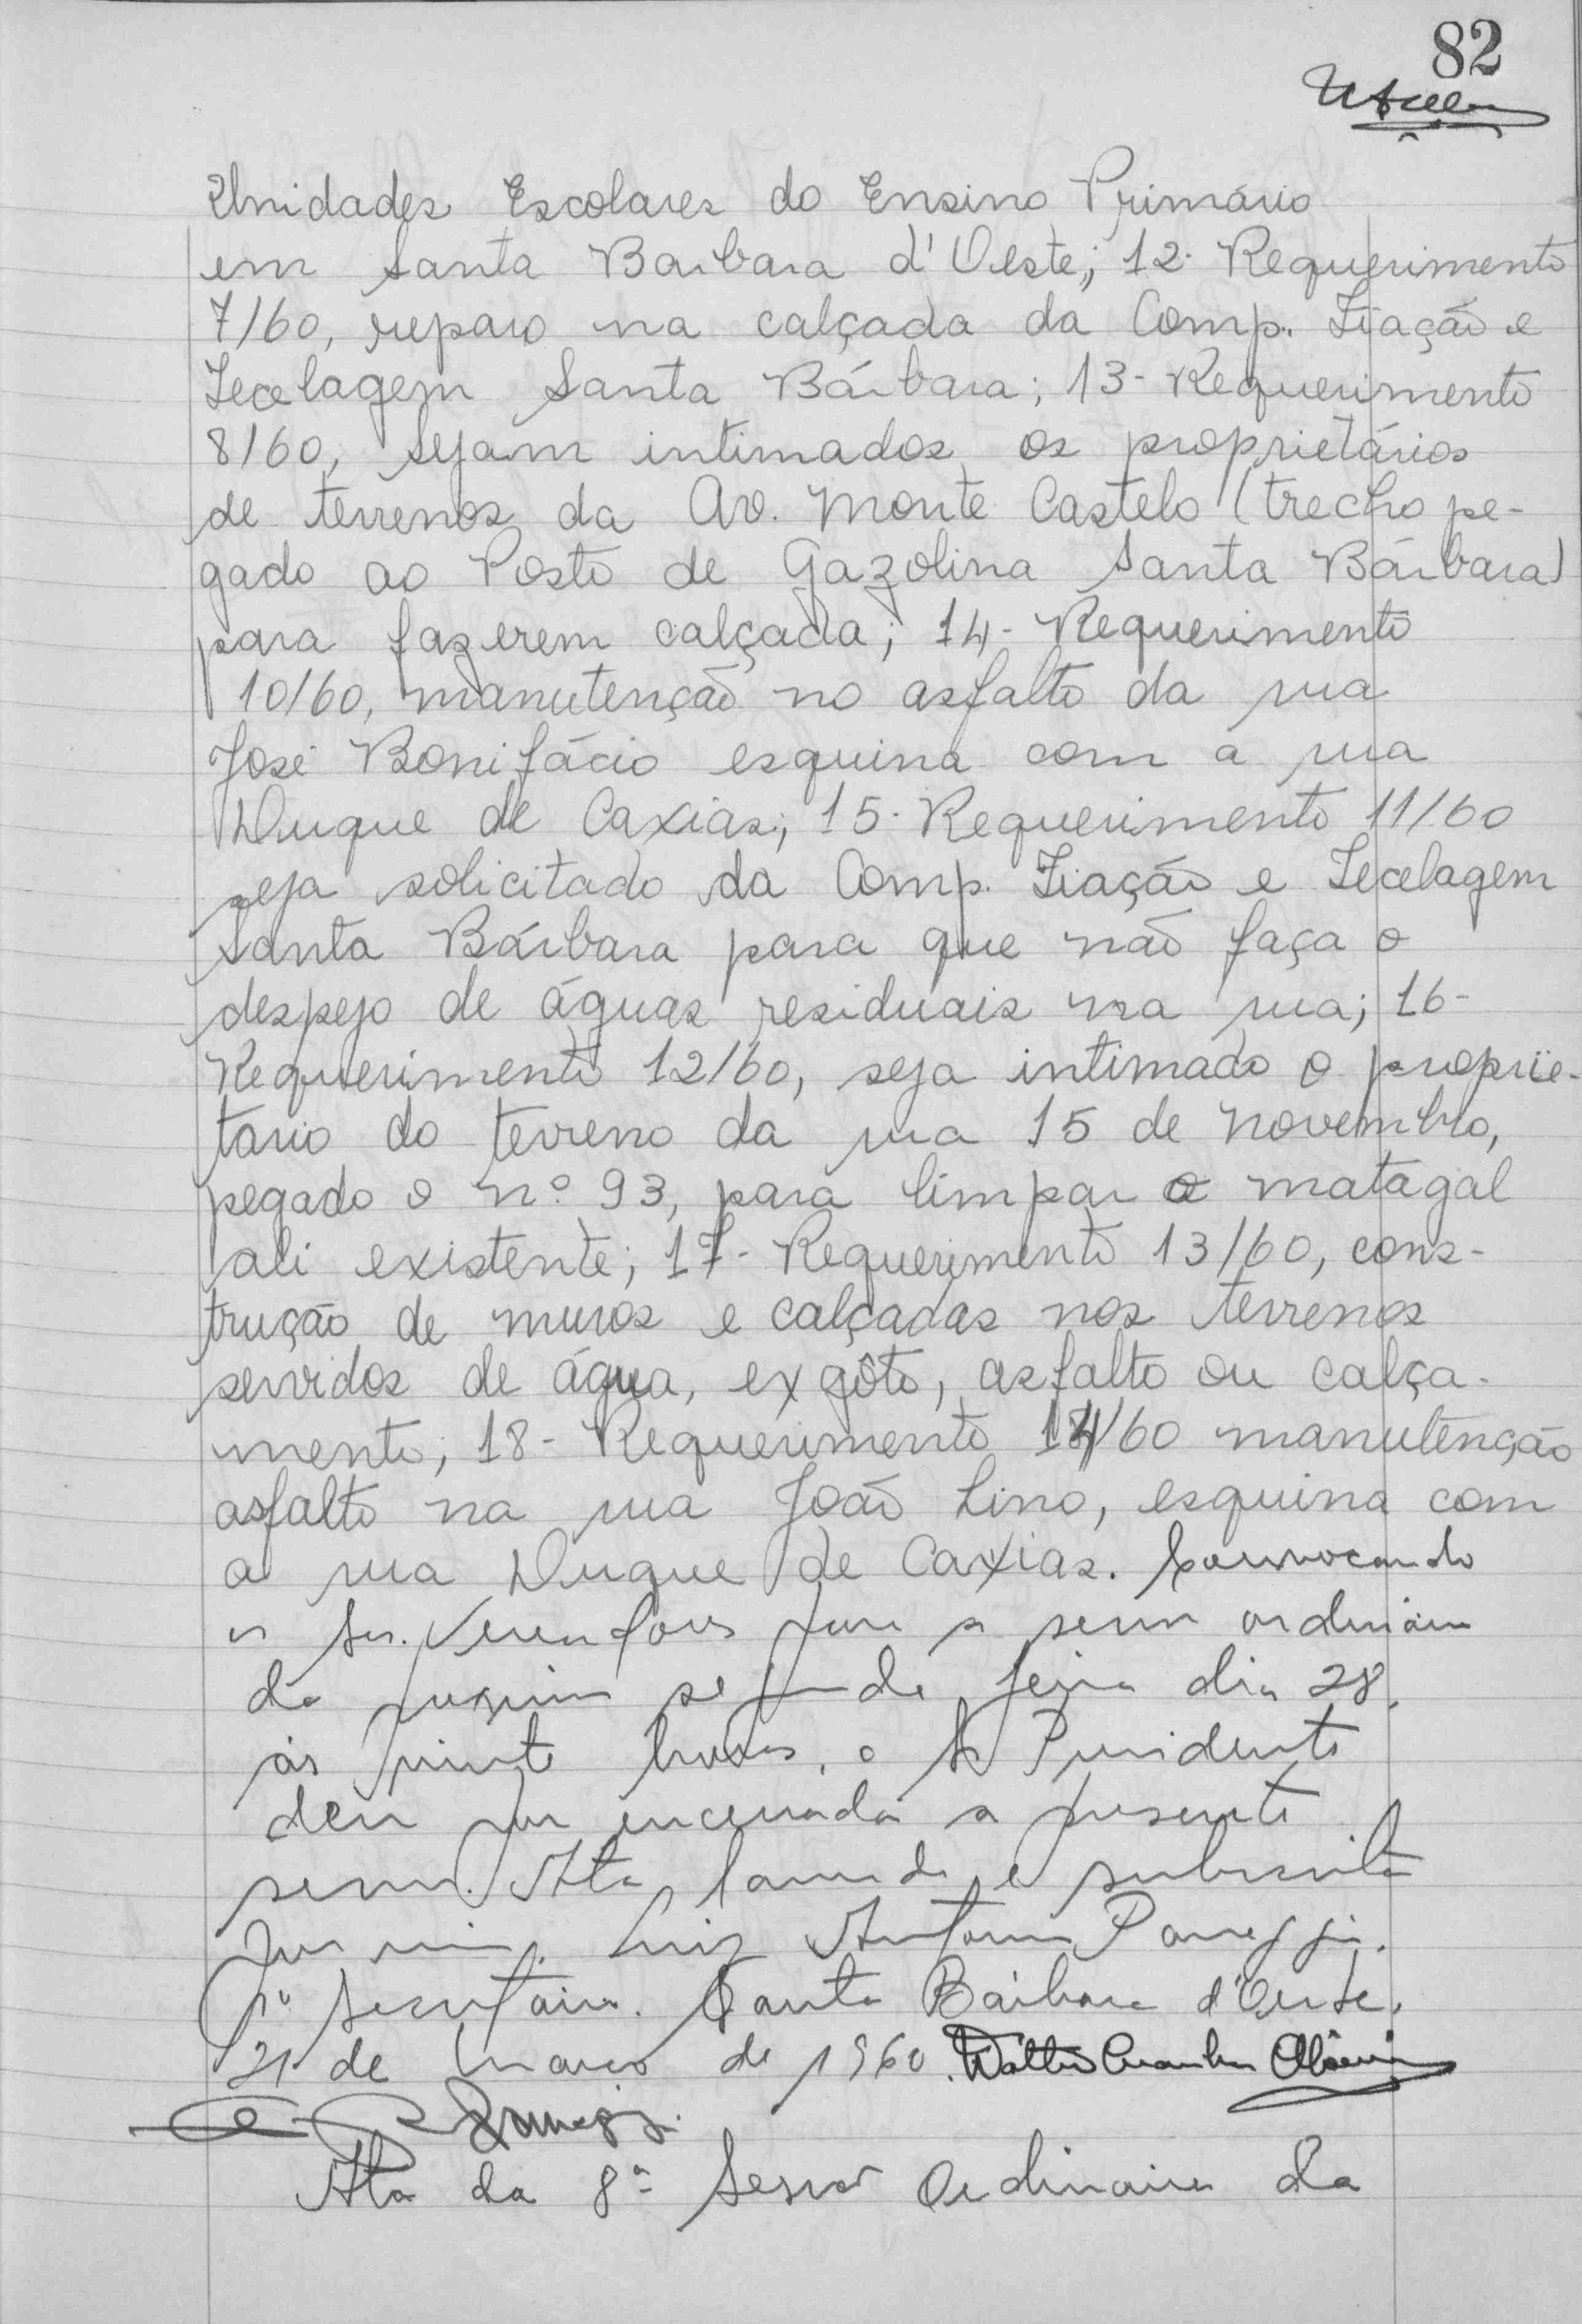 82
Unidades Escolares do Ensino Primário
em Santa Barbara d'Oeste; 12- Requerimento
7/60, reparo na calçada da Comp. Fiação e
Tecelagem Santa Bárbara; 13- Requerimento
8/60, sejam intimados os proprietários
de terrenos da Av. Monte Castelo (trecho pe-
gado ao Posto de Gazolina Santa Bárbara)
para fazerem calçada; 14- Requerimento
10/60, manutenção no asfalto da rua
José Bonifácio esquina com a rua
Duque de Caxias; 15- Requerimento 11/60
seja solicitado da Comp. Fiação e Tecelagem
Santa Bárbara para que não faça o
despejo de águas residuais na rua; 16-
Requerimento 12/60, seja intimado o proprie-
tario do terreno da rua 15 de novembro,
pegado o nº 93, para limpar o matagal
ali existente; 17- Requerimento 13/60, cons-
trução de muros e calçadas nos terrenos
servidos de água, exgôto, asfalto ou calça-
mento; 18- Requerimento 14/60 manutenção
asfalto na rua João Lino, esquina com
a rua Duque de Caxias. Convocando
os Srs. Vereadores para a sessão ordinária
da proxima segunda feira dia 28,
às vinte horas, o Sr Presidente
deu por encerrada a presente
sessão. Ata lavrada e subscrita
por mim, Luiz Antonio Panaggio.
1º Secretário. Santa Bárbara d'Oeste,
21 de março de 1960. Walter
Ata da 8ª Sessão Ordinária da